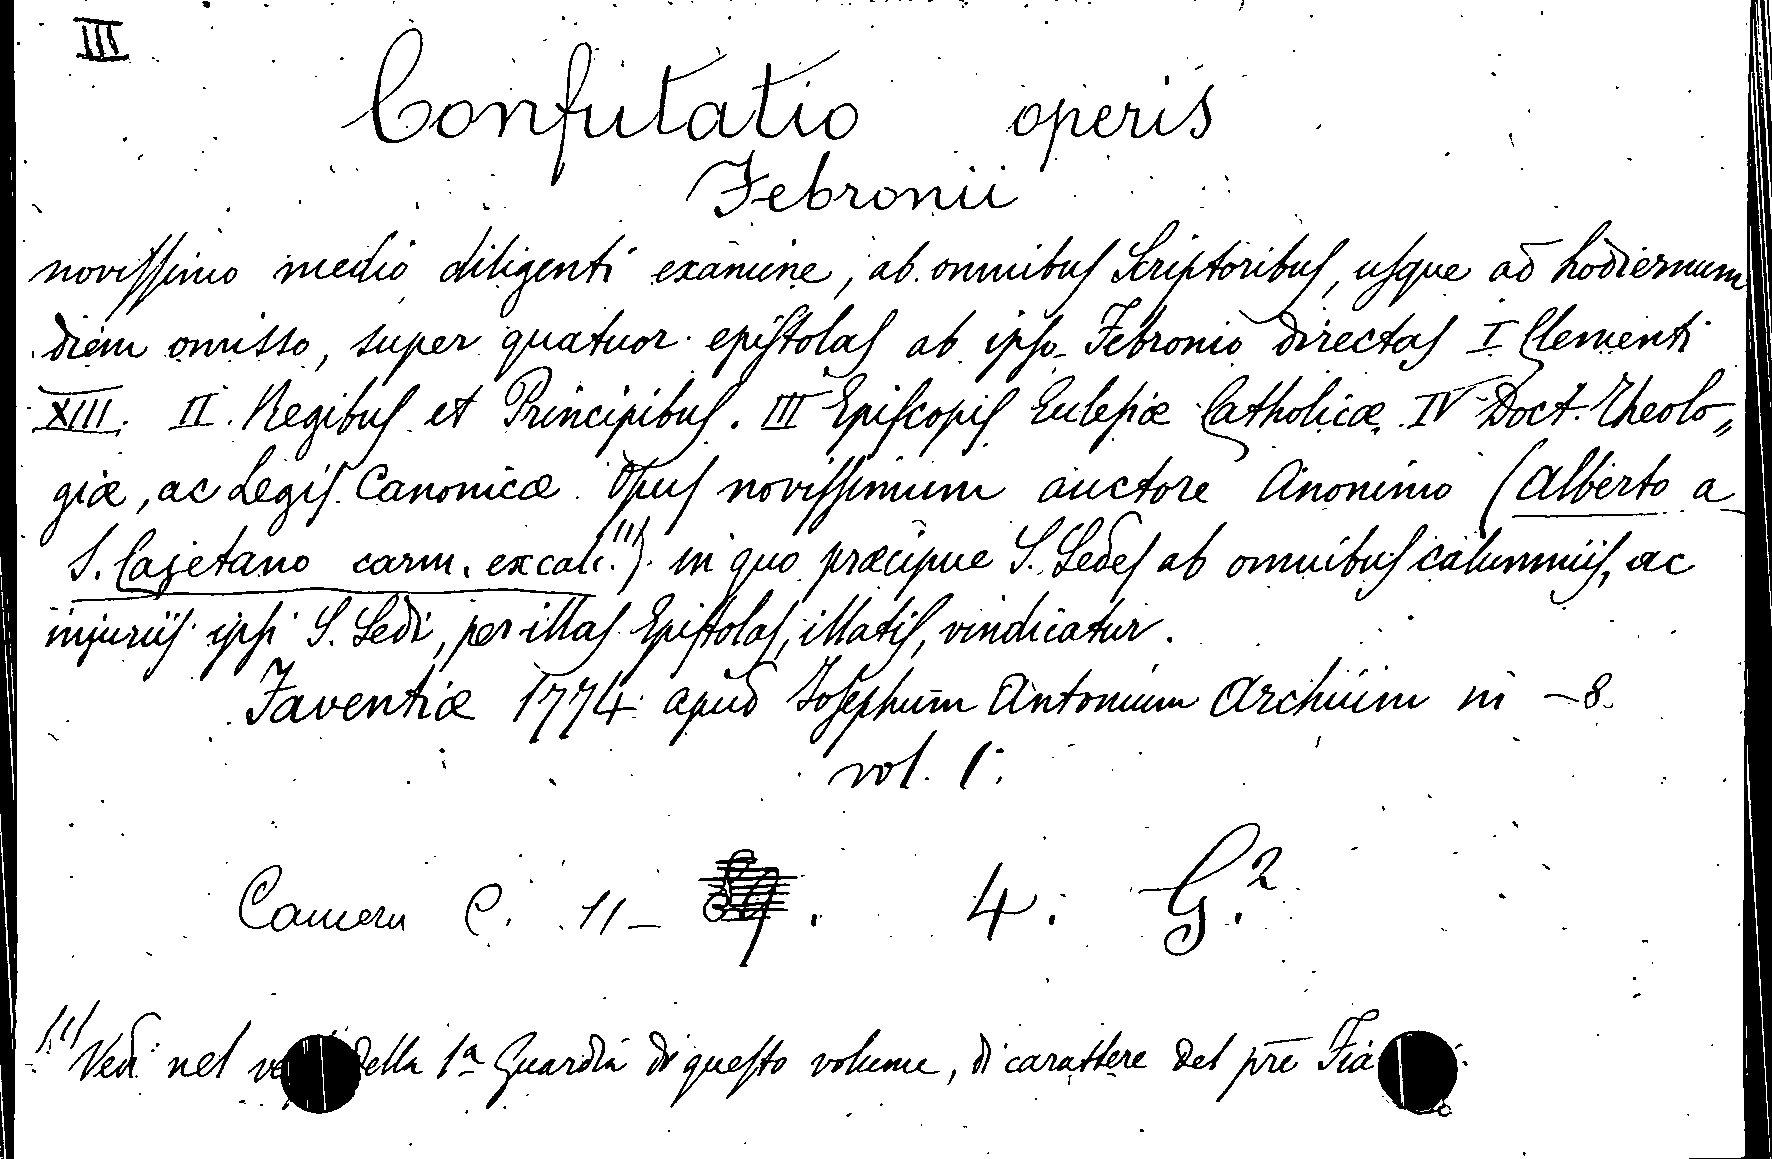 III
Confutatio operis
Febronii
novissimo medio diligenti examine, ab omnibus Scriptoribus, usque ad hodiernum
diem omisso, super quatuor epistolas ab ipso Febronio directas I Clementi
XIII. II. Regibus et Principibus. III Episcopis Eclesiæ Catholicæ. IV Doct. Theolo„
giæ, ac Legis Canonicæ. Opus novissimum auctore Anonimo (Alberto a
S. Cajetano carm. excalc.(1)). in quo præcipue S. Sedes ab omnibus calumniis, ac
injuriis ipsi S. Sedi, per illas Epistolas, illatis, vindicatur.
Faventiæ 1774 apud Josephum Antonium Archiim in -8.
vol. 1.
Camera C. 11- 4. G.2
(1) Vedi nel della 1a Guardia di questo volume, di carattere del pre